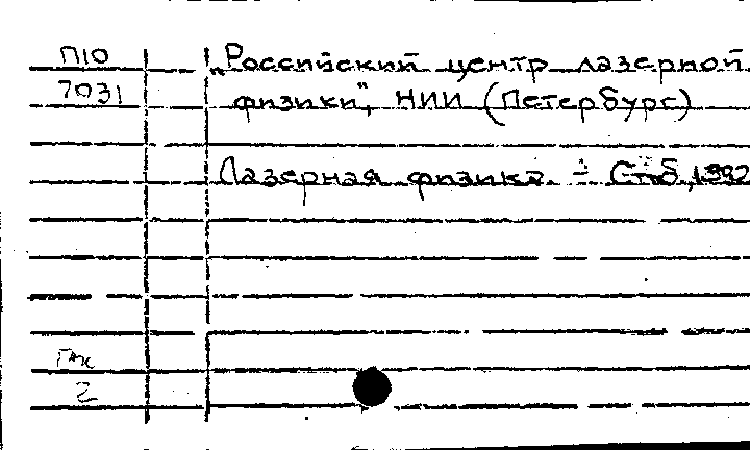 П10
7031
„Российский центр лазерной
физики", НИИ (Петербург)
Лазерная физика. - Спб, 1992
2